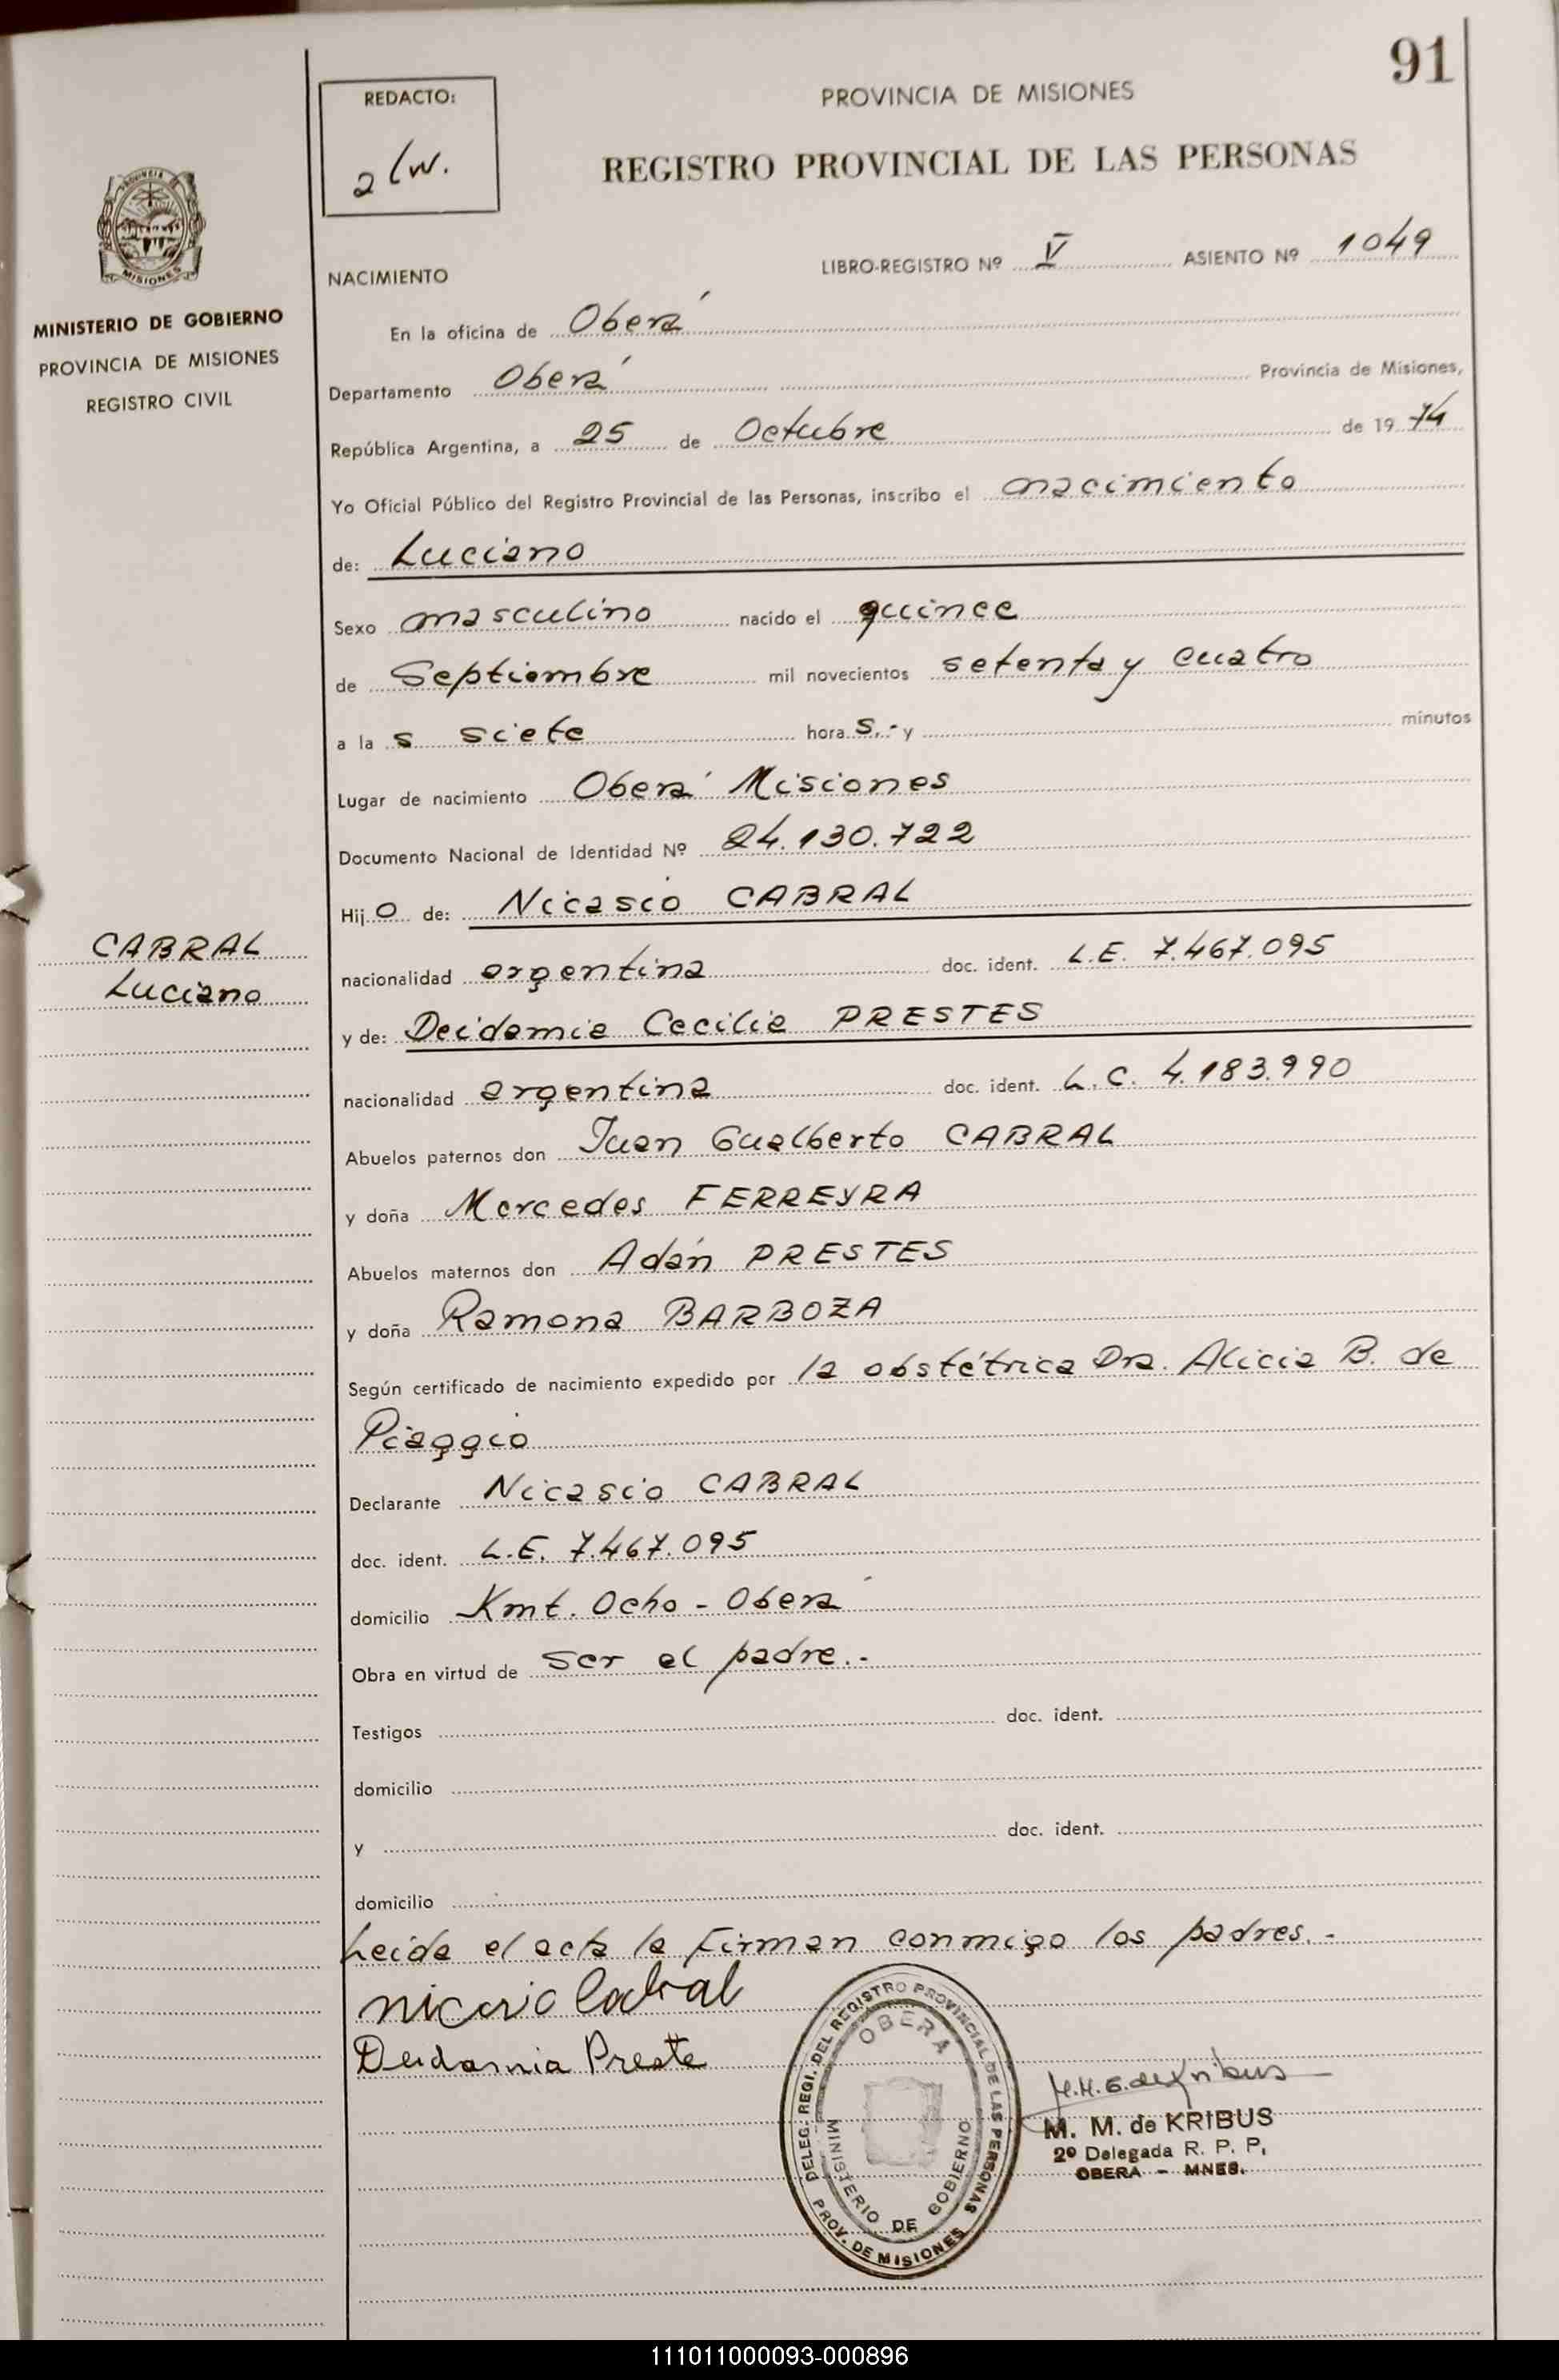 91
REDACTO:
PROVINCIA DE MISIONES
REGISTRO PROVINCIAL DE LAS PERSONAS
MISIONES
MINISTERIO DE GOBIERNO
PROVINCIA DE MISIONES
REGISTRO CIVIL
NACIMIENTO LIBRO-REGISTRO Nº V ASIENTO Nº 1049
En la oficina de Oberá
Departamento Oberá Provincia de Misiones,
República Argentina, a 25 de Octubre de 19 74
Yo Oficial Público del Registro Provincial de las Personas, inscribo el nacimiento
de: Luciano
Sexo masculino nacido el quince
de Septiembre mil novecientos setenta y cuatro
a la s siete hora s.- y minutos
Lugar de nacimiento Oberá Misiones
Documento Nacional de Identidad Nº 24.130.722
Hij o de: Nicasio CABRAL
CABRAL
Luciano
nacionalidad argentina doc. ident. L.E. 7.467.095
y de: Deidamia Cecilia PRESTES
nacionalidad argentina doc. ident. L.C. 4.183.990
Abuelos paternos don Juan Gualberto CABRAL
y doña Mercedes FERREYRA
Abuelos maternos don Adán PRESTES
y doña Ramona BARBOZA
Según certificado de nacimiento expedido por la obstétrica Dra. Alicia B. de
Piaggio
Declarante Nicasio CABRAL
doc. ident. L.E. 7.467.095
domicilio Kmt. Ocho - Oberá
Obra en virtud de ser el padre.-
Testigos doc. ident.
domicilio
y doc. ident.
domicilio
Leida el acta la firman conmigo los padres.-
nicasio Cabral
Deidamia Preste
DELEG. REGI. DEL REGISTRO PROVINCIAL DE LAS PERSONAS
PROV. DE MISIONES
OBERA
MINISTERIO DE GOBIERNO
M. M. de KRIBUS
2º Delegada R. P. P.
OBERA - MNES.
111011000093-000896